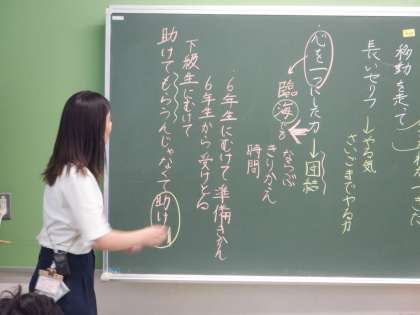 移動を走って
長いセリフ→やる気
さいごまでやる力
心を一つにした力→団結
臨海とも
なつぶ
きりかえ
時間
6年生にむけて準備きかん
6年生から受けとる
下級生にむけて
助けてもらうんじゃなくて助け